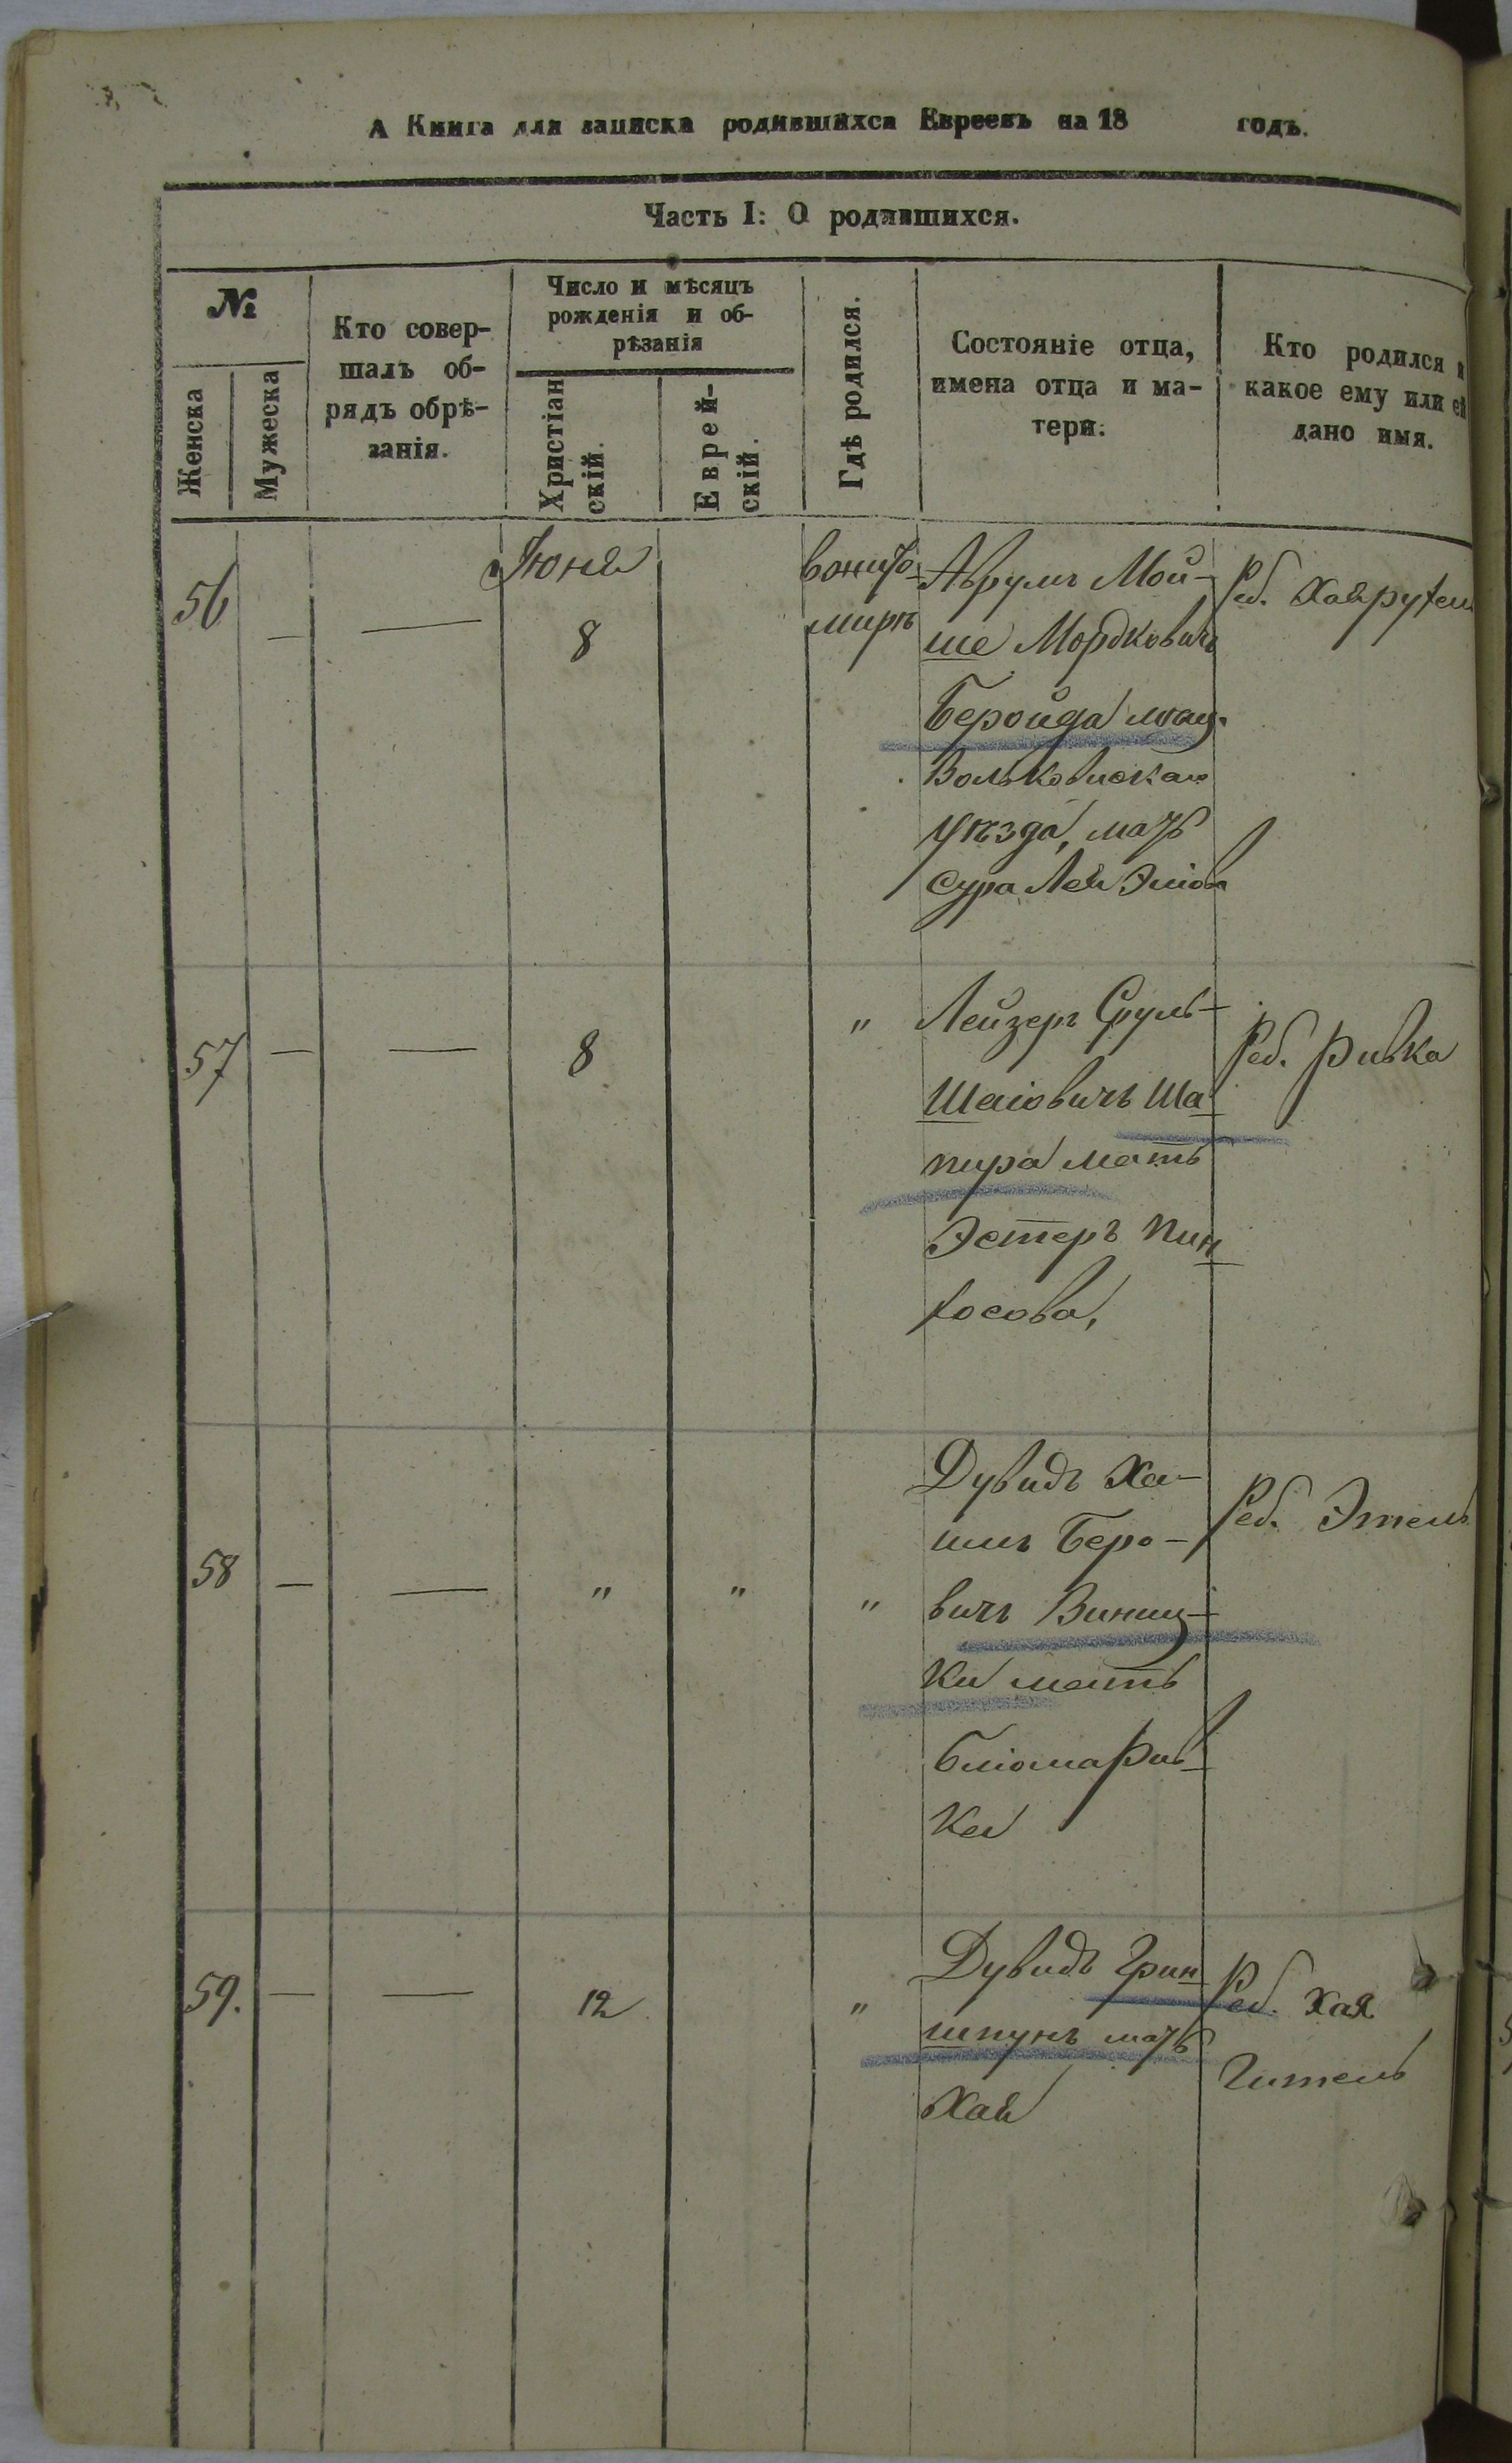 А Книга для записка родившихся Евреевъ на 18 годъ.
Часть I: О родившихся.
№
Женска
Мужеска
Кто совер-
шалъ об-
рядъ обрѣ-
занія.
Число и мѣсяцъ
рожденія и об-
рѣзанія
Христіан
скій.
Еврей-
скій.
Гдѣ родился.
Состояніе отца,
имена отца и ма-
тери.
Кто родился и
какое ему или ей
дано имя.
56 — —
Іюня
8
вжито-
мирѣ
Аврумъ Мой-
ше Мордковичъ
Беройда мѣщ.
уѣзда, мать
Сура Лея
Реб. Хая
57 — — 8 "
Лейзеръ Сруль-
Шаіовичъ Ша-
пира мать
Эстеръ Пин
хосова,
Реб. Ривка
58 — — " " "
Дувидъ Ха-
имъ Беро-
вичъ Виниц-
ки мать
Блюма Рив-
ка
Реб. Этель
59. — — 12 "
Дувидъ Грин
шпунъ мать
Хая
Реб. Хая
Гитель